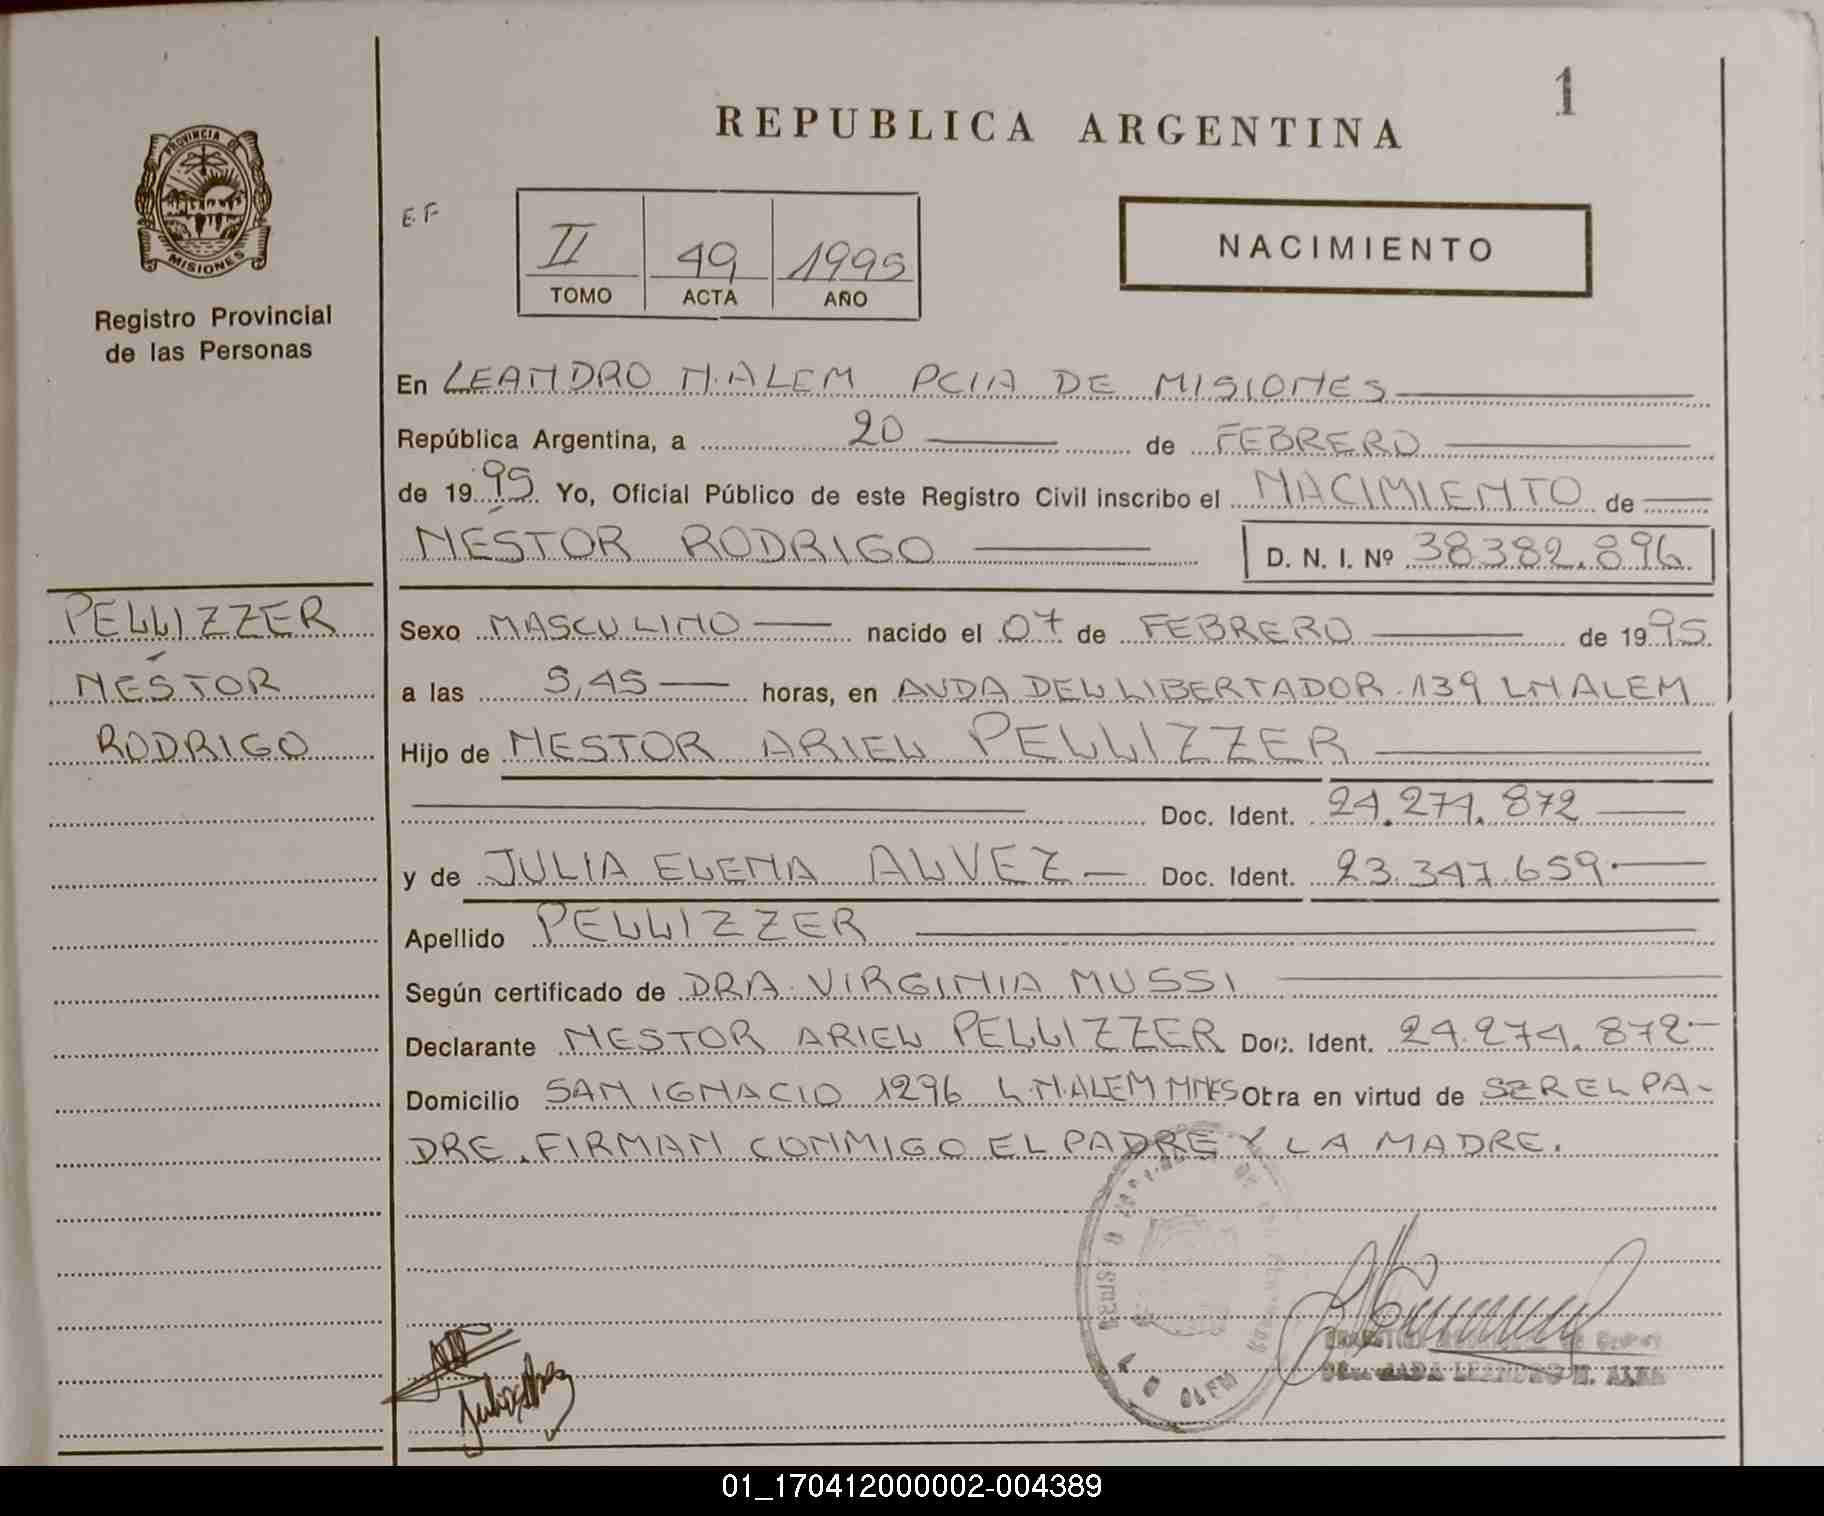 1
REPUBLICA ARGENTINA
PROVINCIA DE
MISIONES
Registro Provincial
de las Personas
E.F
II 49 1995
TOMO ACTA AÑO
NACIMIENTO
En LEANDRO N. ALEM PCIA DE MISIONES
República Argentina, a 20 de FEBRERO
de 1995 Yo, Oficial Público de este Registro Civil inscribo el NACIMIENTO de
NÉSTOR RODRIGO D. N. I. Nº 38.382.896.
PELLIZZER
NÉSTOR
RODRIGO
Sexo MASCULINO nacido el 07 de FEBRERO de 1995.
a las 5,45 horas, en AVDA DEL LIBERTADOR 139 LN ALEM
Hijo de NESTOR ARIEL PELLIZZER
Doc. Ident. 24.274.872
y de JULIA ELENA ALVEZ Doc. Ident. 23.347.659.
Apellido PELLIZZER
Según certificado de DRA. VIRGINIA MUSSI
Declarante NESTOR ARIEL PELLIZZER Doc. Ident. 24.274.872
Domicilio SAN IGNACIO 1296 L.N.ALEM MNES Obra en virtud de SER EL PA-
DRE. FIRMAN CONMIGO EL PADRE Y LA MADRE.
LEANDRO N. ALEM
01_170412000002-004389